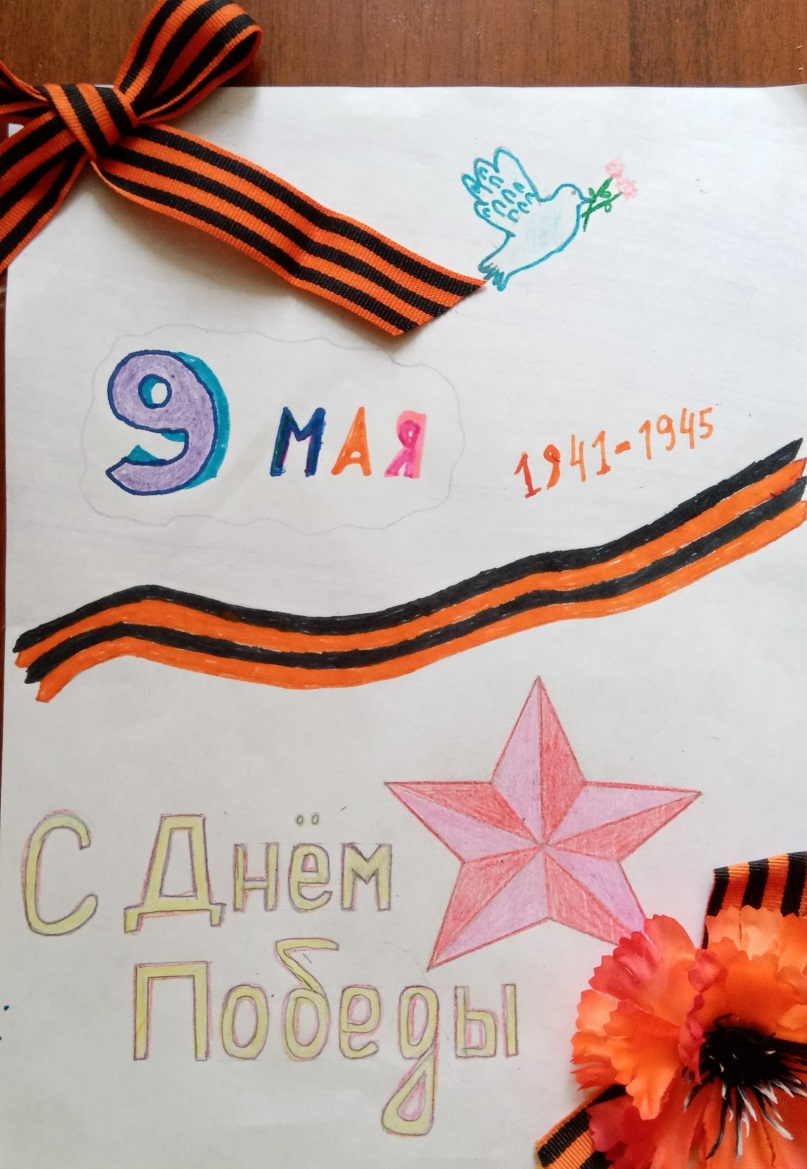 9 МАЯ
1941-1945
С Днём
Победы